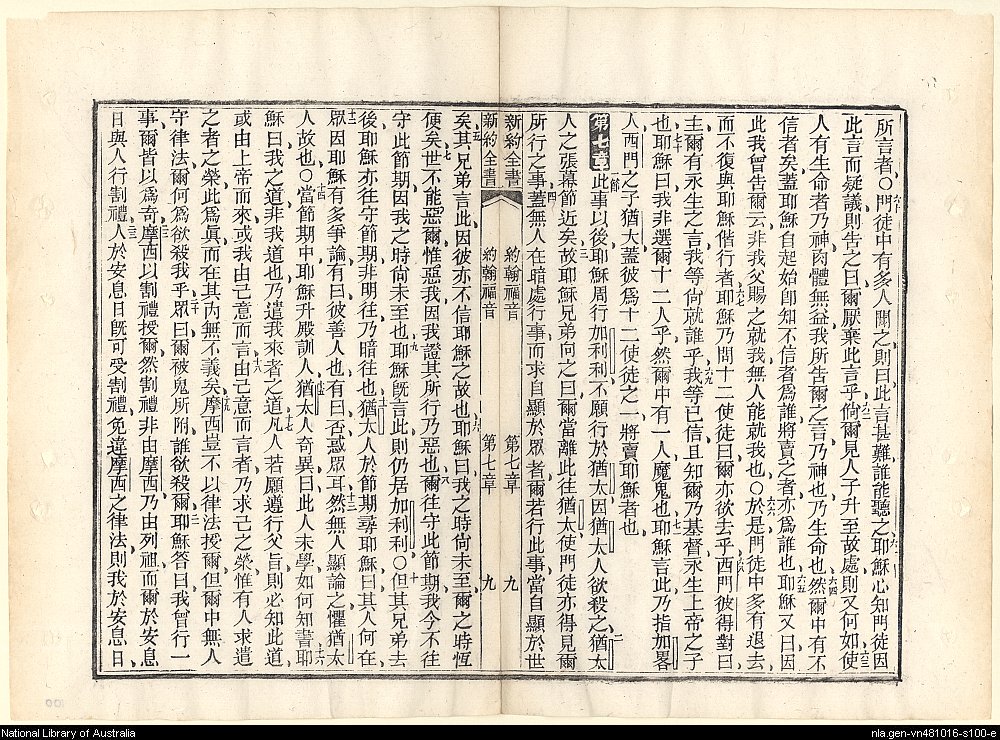 所言者○門徒中有多人聞之則曰此言甚難誰能聽之耶穌心知門徒因
此言而疑議則告之曰爾厭棄此言乎倘爾見人子升至故處則又何如使
人有生命者乃神肉體無益我所告爾之言乃神也乃生命也然爾中有不
信者矣蓋耶穌自起始即知不信者爲誰將賣之者亦爲誰也耶穌又曰因
此我曾告爾云非我父賜之就我無人能就我也○於是門徒中多有退去
而不復與耶穌偕行者耶穌乃問十二使徒曰爾亦欲去乎西門彼得對曰
主爾有永生之言我等尙就誰乎我等已信且知爾乃基督永生上帝之子
也耶穌曰我非選爾十二人乎然爾中有一人魔鬼也耶穌言此乃指加畧
人西門之子猶大蓋彼爲十二使徒之一將賣耶穌者也
第七章 一節 此事以後耶穌周行加利利不願行於猶太因猶太人欲殺之猶太
人之張幕節近矣故耶穌兄弟向之曰爾當離此往猶太使門徒亦得見爾
所行之事蓋無人在暗處行事而求自顯於眾者爾若行此事當自顯於世
新約全書 約翰福音 第七章 九
新約全書 約翰福音 第七章 九
矣其兄弟言此因彼亦不信耶穌之故也耶穌曰我之時尙未至爾之時恆
便矣世不能惡爾惟惡我因我證其所行乃惡也爾往守此節期我今不往
守此節期因我之時尙未至也耶穌既言此則仍居加利利○但其兄弟去
後耶穌亦往守節期非明往乃暗往也猶太人於節期尋耶穌曰其人何在
眾因耶穌有多爭論有曰彼善人也有曰否惑眾耳然無人顯論之懼猶太
人故也○當節期中耶穌升殿訓人猶太人奇異曰此人未學如何知書耶
穌曰我之道非我道也乃遣我來者之道凡人若願遵行父旨則必知此道
或由上帝而來或我由己意而言由己意而言者乃求己之榮惟有人求遣
之者之榮此爲眞而在其內無不義矣摩西豈不以律法授爾但爾中無人
守律法爾何爲欲殺我乎眾曰爾被鬼所附誰欲殺爾耶穌答曰我曾行一
事爾皆以爲奇摩西以割禮授爾然割禮非由摩西乃由列祖而爾於安息
日與人行割禮人於安息日既可受割禮免違摩西之律法則我於安息日
National Library of Australia
nla.gen-vn481016-s100-e